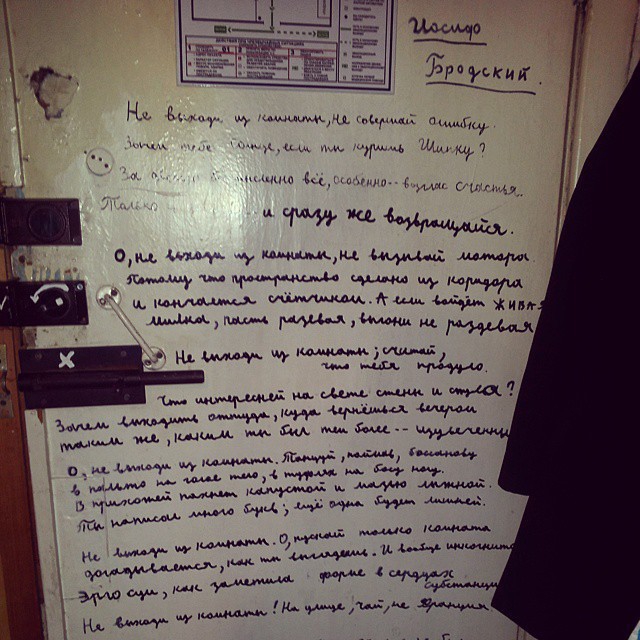 Иосиф
Бродский.
Не выходи из комнаты, не совершай ошибку.
Зачем тебе Солнце, если ты куришь Шипку?
За дверью бессмысленно всё, особенно -- возглас счастья.
Только и сразу же возвращайся.
О, не выходи из комнаты, не вызывай мотора.
Потому что пространство сделано из коридора
и кончается счётчиком. А если войдёт живая
милка, пасть разевая, выгони не раздевая
Не выходи из комнаты; считай,
что тебя продуло.
Что интересней на свете стены и стула?
Зачем выходить оттуда, куда вернёшься вечером
таким же, каким ты был тем более -- изувеченны
О, не выходи из комнаты. Танцуй, поймав, боссанову
в пальто на голое тело, в туфлях на босу ногу.
В прихожей пахнет капустой и мазью лыжной.
Ты написал много букв; ещё одна будет лишней.
Не выходи из комнаты. О, пускай только комната
догадывается, как ты выглядишь. И вообще инкогнито
эрго сум, как заметила форме в сердцах
субстанция
Не выходи из комнаты! На улице, чай, не Франция